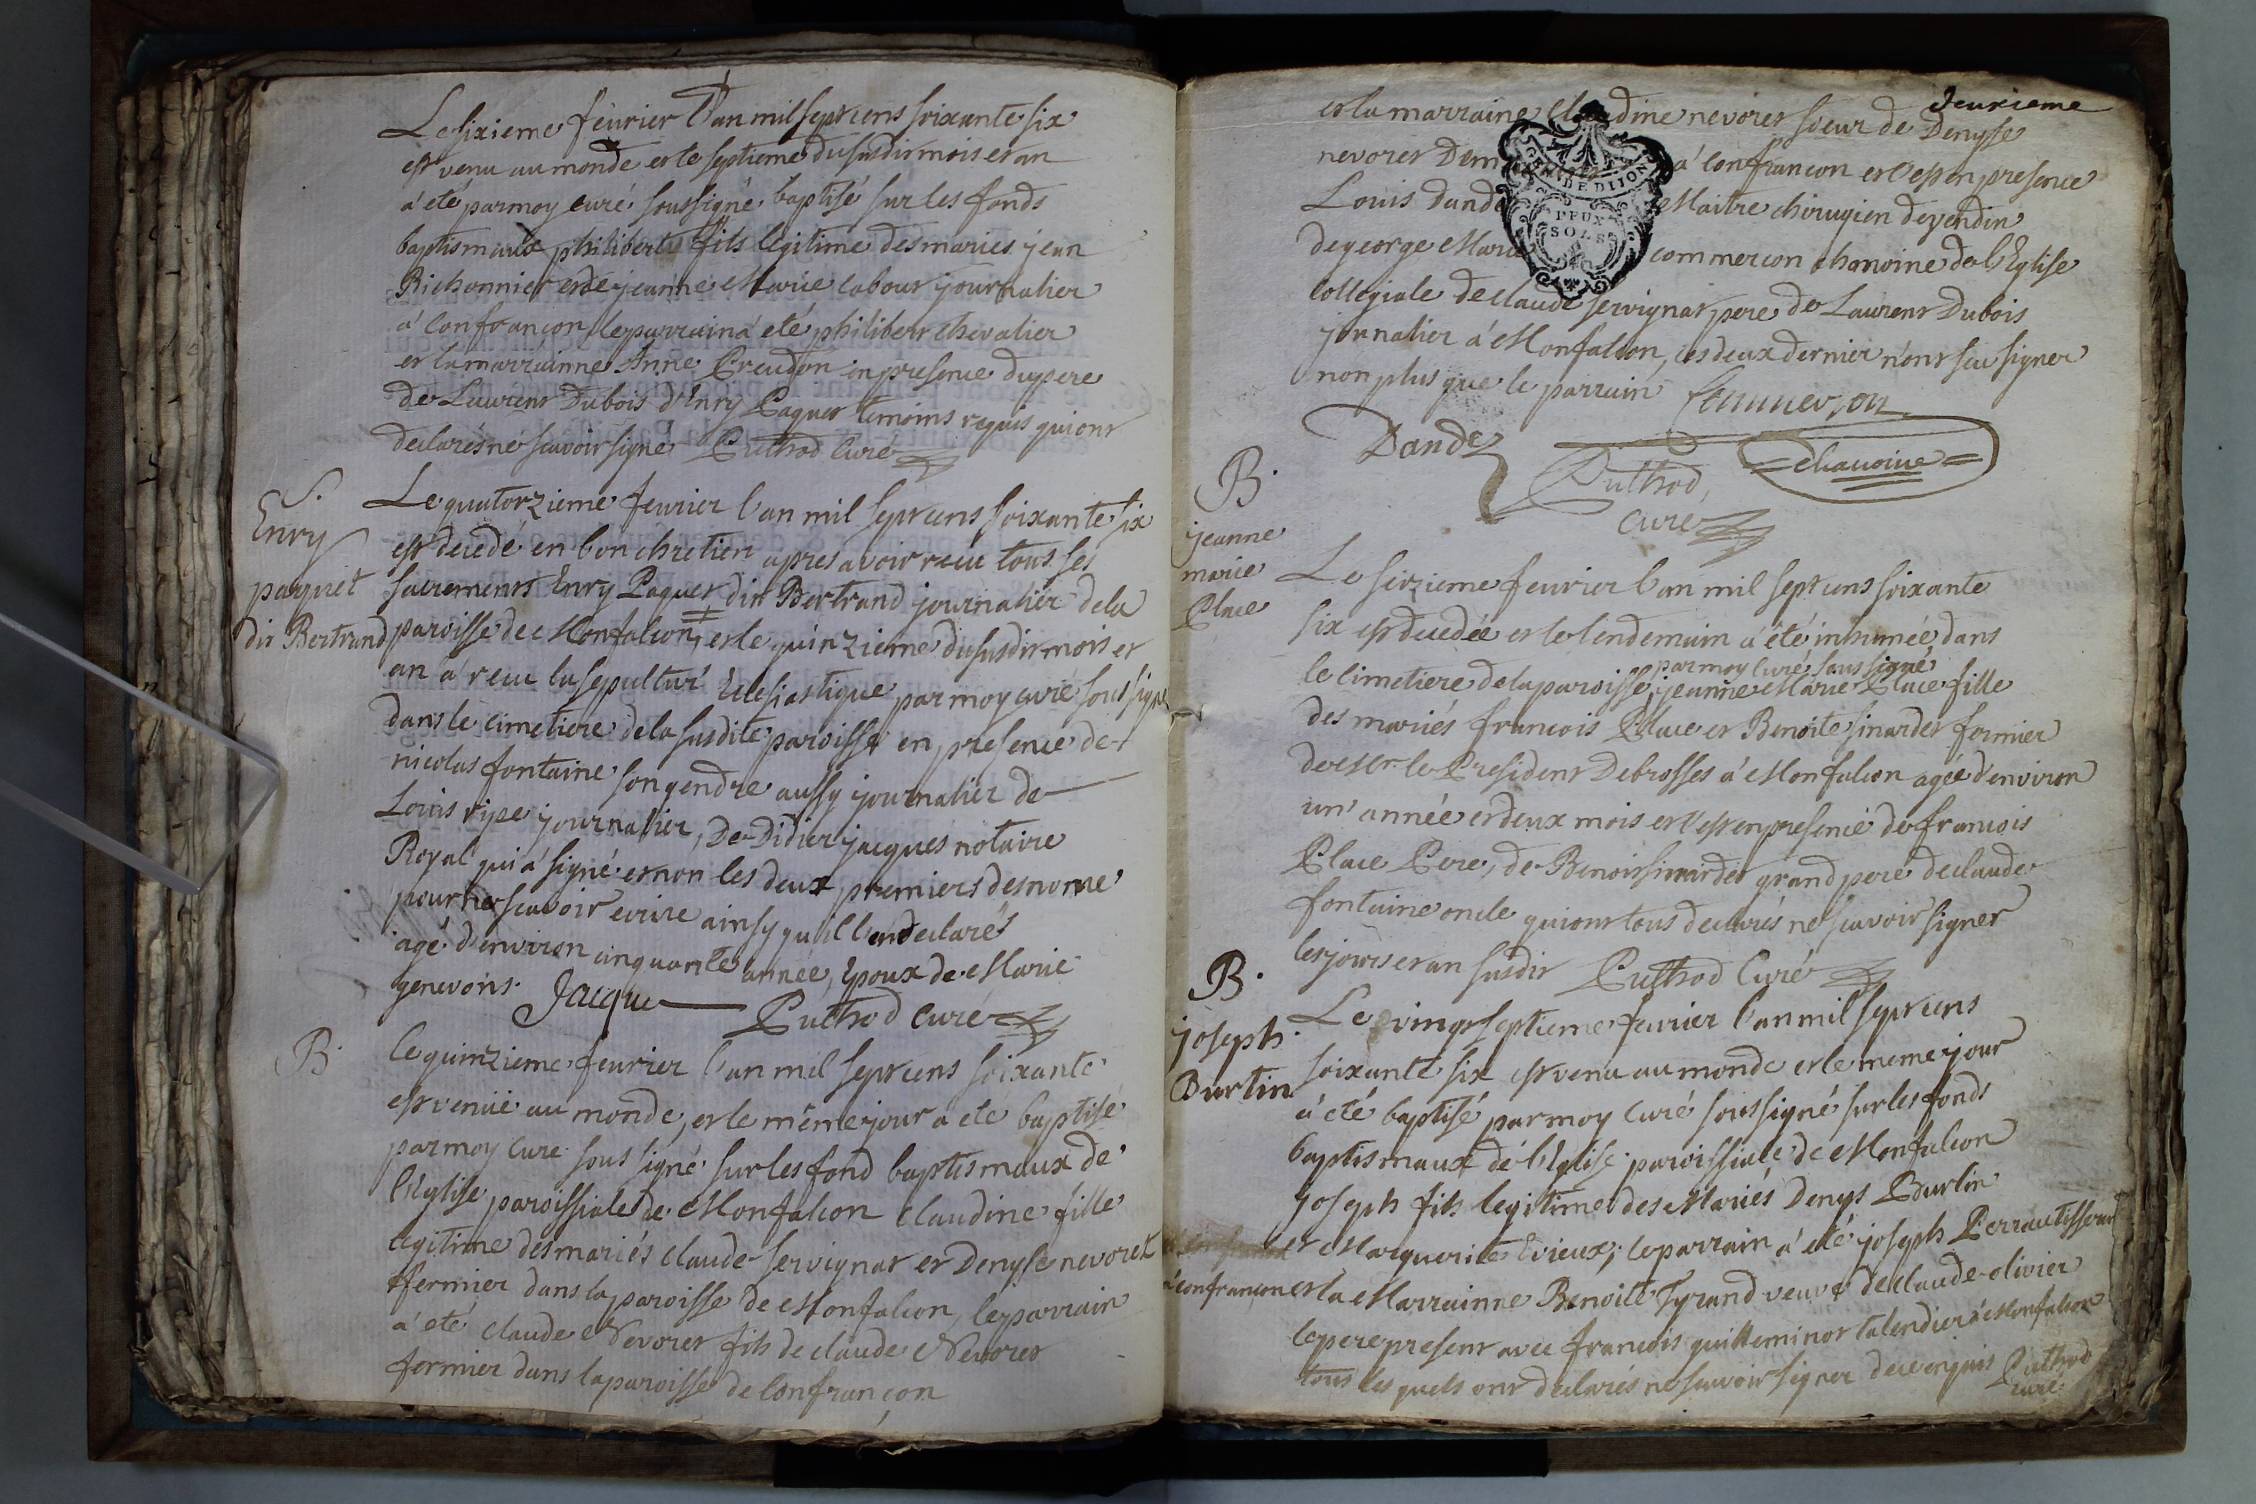 Le sixieme fevrier l'an mil sept cens soixante six
est venu au monde et le septieme du susdit mois et an
à été par moy curé soussigné baptisé sur les fonds
baptismaux philibert fils legitime des mariés jean
Bichonnier et de jeanne Marie labour journalier
à Confrançon, le parrain à eté philibert chevalier
et la marrainne Anne Creudon en presence du pere
de Laurent Dubois d'Enry Paquet temoins requis qui ont
declarés ne scavoir signé Puthod Curé
S.
Enry
paquet
dit Bertrand
Le quatorzieme fevrier l'an mil sept cens soixante six
est decedé en bon chretien apres avoir recu tous ses
sacrements Enry Paquet dit Bertrand journalier de la
paroisse de Monfalcon, et le quinzieme du susdit mois et
an à recu la sepultur' Eclesiastique par moy curé sous signé
dans le cimetiere de la susdite paroisse en presence de
nicolas fontaine son gendre aussy journalier de
Louis ripe journalier, De Didier jacques notaire
Royal qui à signé et non les deux premiers desnomé
pour ne scavoir ecrire ainsy qu'il l'en declarés
agé d'environ cinquante année, Epoux de Marie
genevois. Jacque
Puthod curé
B.
le quinzieme fevrier l'an mil sept cens soixante
est venüe au monde, et le même jour a eté baptisé
par moy Curé sous signé sur les fond baptismaux de
l'Eglise paroissiale de Monfalcon Claudine fille
legitime des mariés claude servignat et Denyse nevoret
fermier dans la paroisse de Monfalcon, le parrain
à eté claude Nevoret fils de claude Nevoret
fermier dans la paroisse de Confrançon
deuxieme
et la marraine Claudine nevoret soeur de Denyse
nevoret à Confrançon et c'est en presence
Louis dandé Maitre chirugien de vendin
de george Marie commercon chanoine de l'Eglise
Collegiale de claude servignat pere de Laurent Dubois
journalier à Monfalcon, les deux dernier n'ont scu signer
non plus que le parrain Commerçon
GEN DE DIJON
DEUX
SOLS
Dandé
Puthod, chanoine
curé
B.
jeanne
marie
Place
Le seizieme fevrier l'an mil sept cens soixante
six est decedée et le lendemain à été inhumée dans
par moy Curé sous signé
le cimetiere de la paroisse, jeanne Marie Place fille
des mariés francois Place et Benoite sinardet fermier
de Mr le President Debrosses à Monfalcon agée d'environ
un' année et deux mois et c'est en presence de francois
Place Pere, de Benoit sinardet grand pere de claude
fontaine oncle qui ont tous declarés ne scavoir signer
les jours et an susdit Puthod Curé
B.
joseph
Burtin
Le vingt septieme fevrier l'an mil sept cens
soixante six est venu au monde et le meme jour
à eté baptisé par moy Curé sous signé sur les fonds
baptismaux de l'Eglise paroissiale de Monfalcon
joseph fils legitime des Mariés Denys Burtin
et Marguerite Evieux; le parrain à eté joseph Perrautisserand
à Confrançon et la Marrainne Benoite Tyrand veuve de claude olivier
le pere present avec francois guilleminot talendier à Monfalcon
tous les quels ont declarés ne scavoir signer de ce enquis Puthod
curé